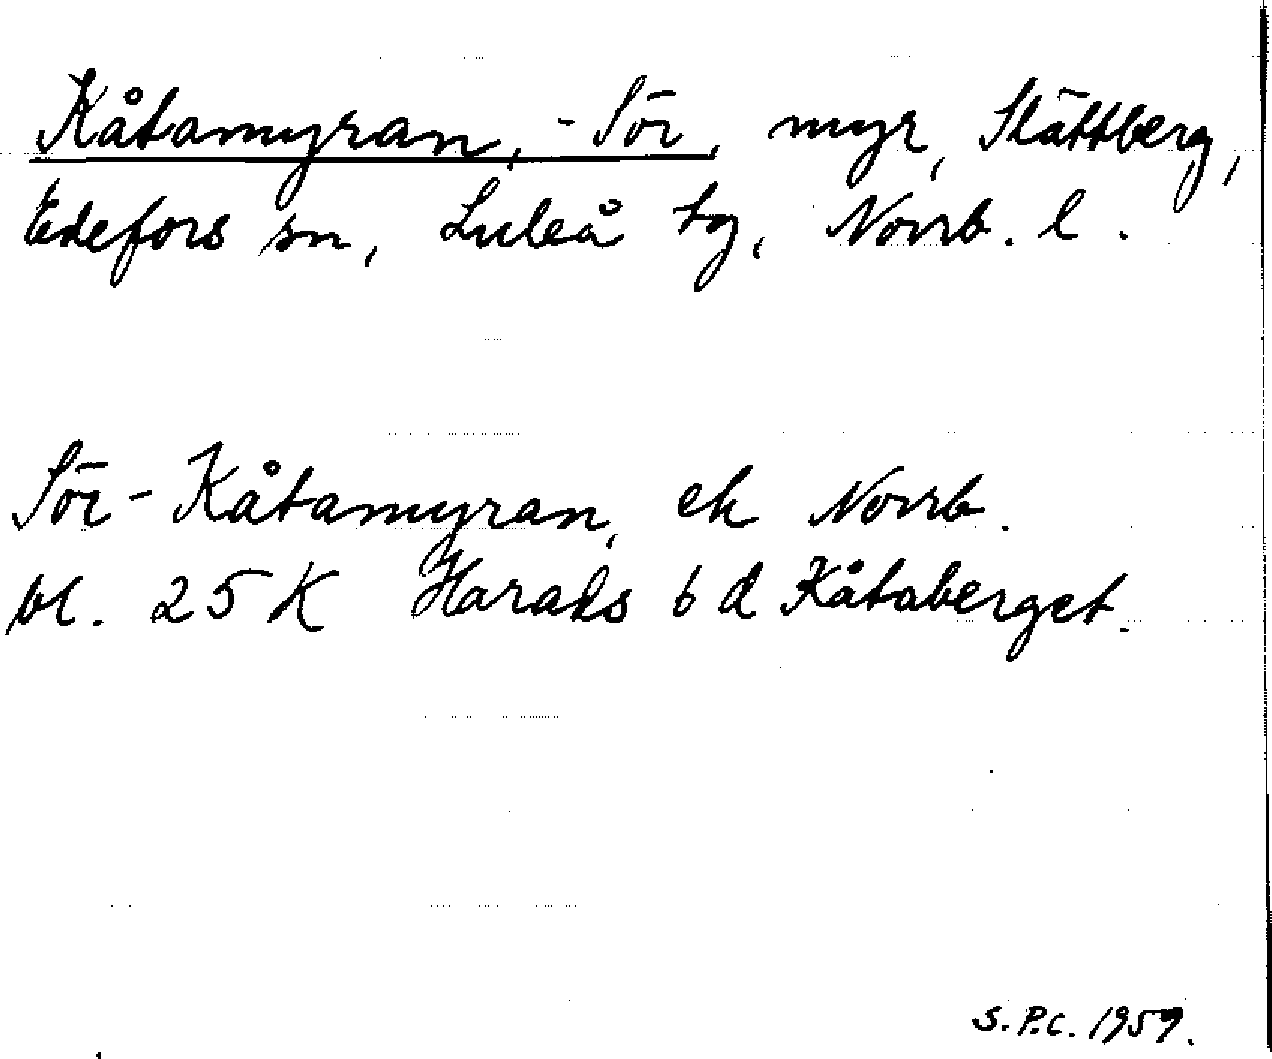 Kåtamyran, - Sör, myr, Slättberg,
Edefors sn, Luleå tg, Norrb. l.
Sör-Kåtamyran, ek Norrb.
bl. 25 K Harads 6 d Kåtaberget.
S.P.C. 1959.